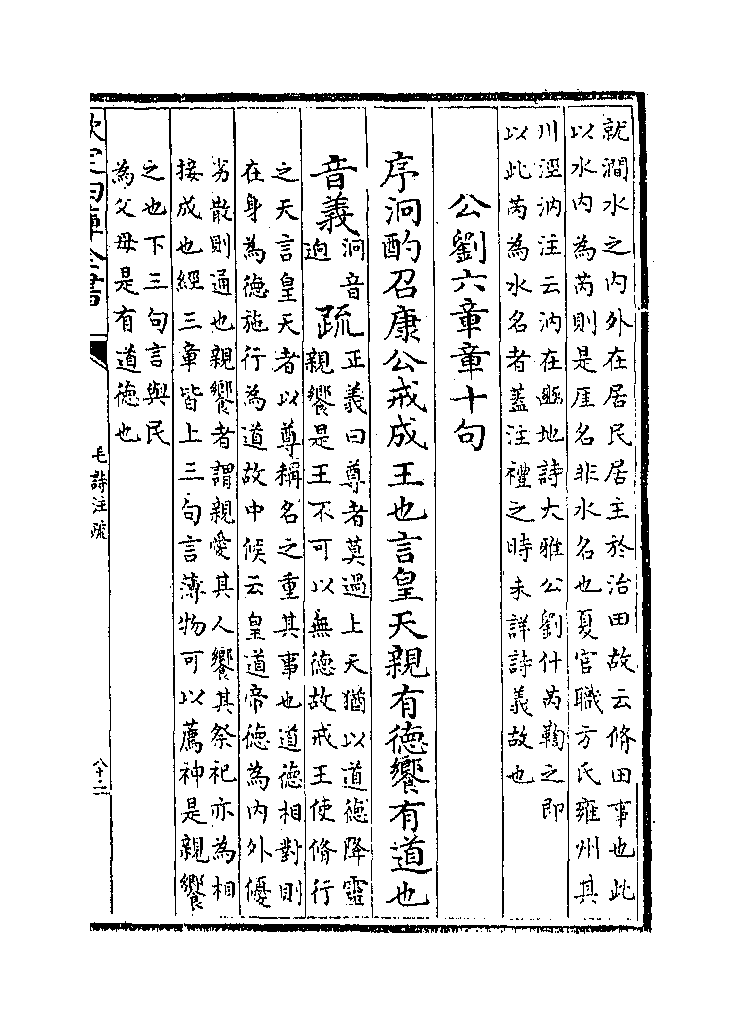 就澗水之內外在居民居主於治田故云脩田事也此
以水內為芮則是厓名非水名也夏官職方氏雍州其
川涇汭注云汭在豳地詩大雅公劉什芮鞫之即
以此芮為水名者蓋注禮之時未詳詩義故也
公劉六章章十句
序泂酌召康公戒成王也言皇天親有德饗有道也
音義
泂音
迥
疏
正義曰尊者莫過上天猶以道德降靈
親饗是王不可以無德故戒王使脩行
之天言皇天者以尊稱名之重其事也道德相對則
在身為德施行為道故中候云皇道帝德為內外優
劣散則通也親饗者謂親愛其人饗其祭祀亦為相
接成也經三章皆上三句言薄物可以薦神是親饗
之也下三句言與民
為父母是有道德也
欽定四庫全書
毛詩注疏
八十二